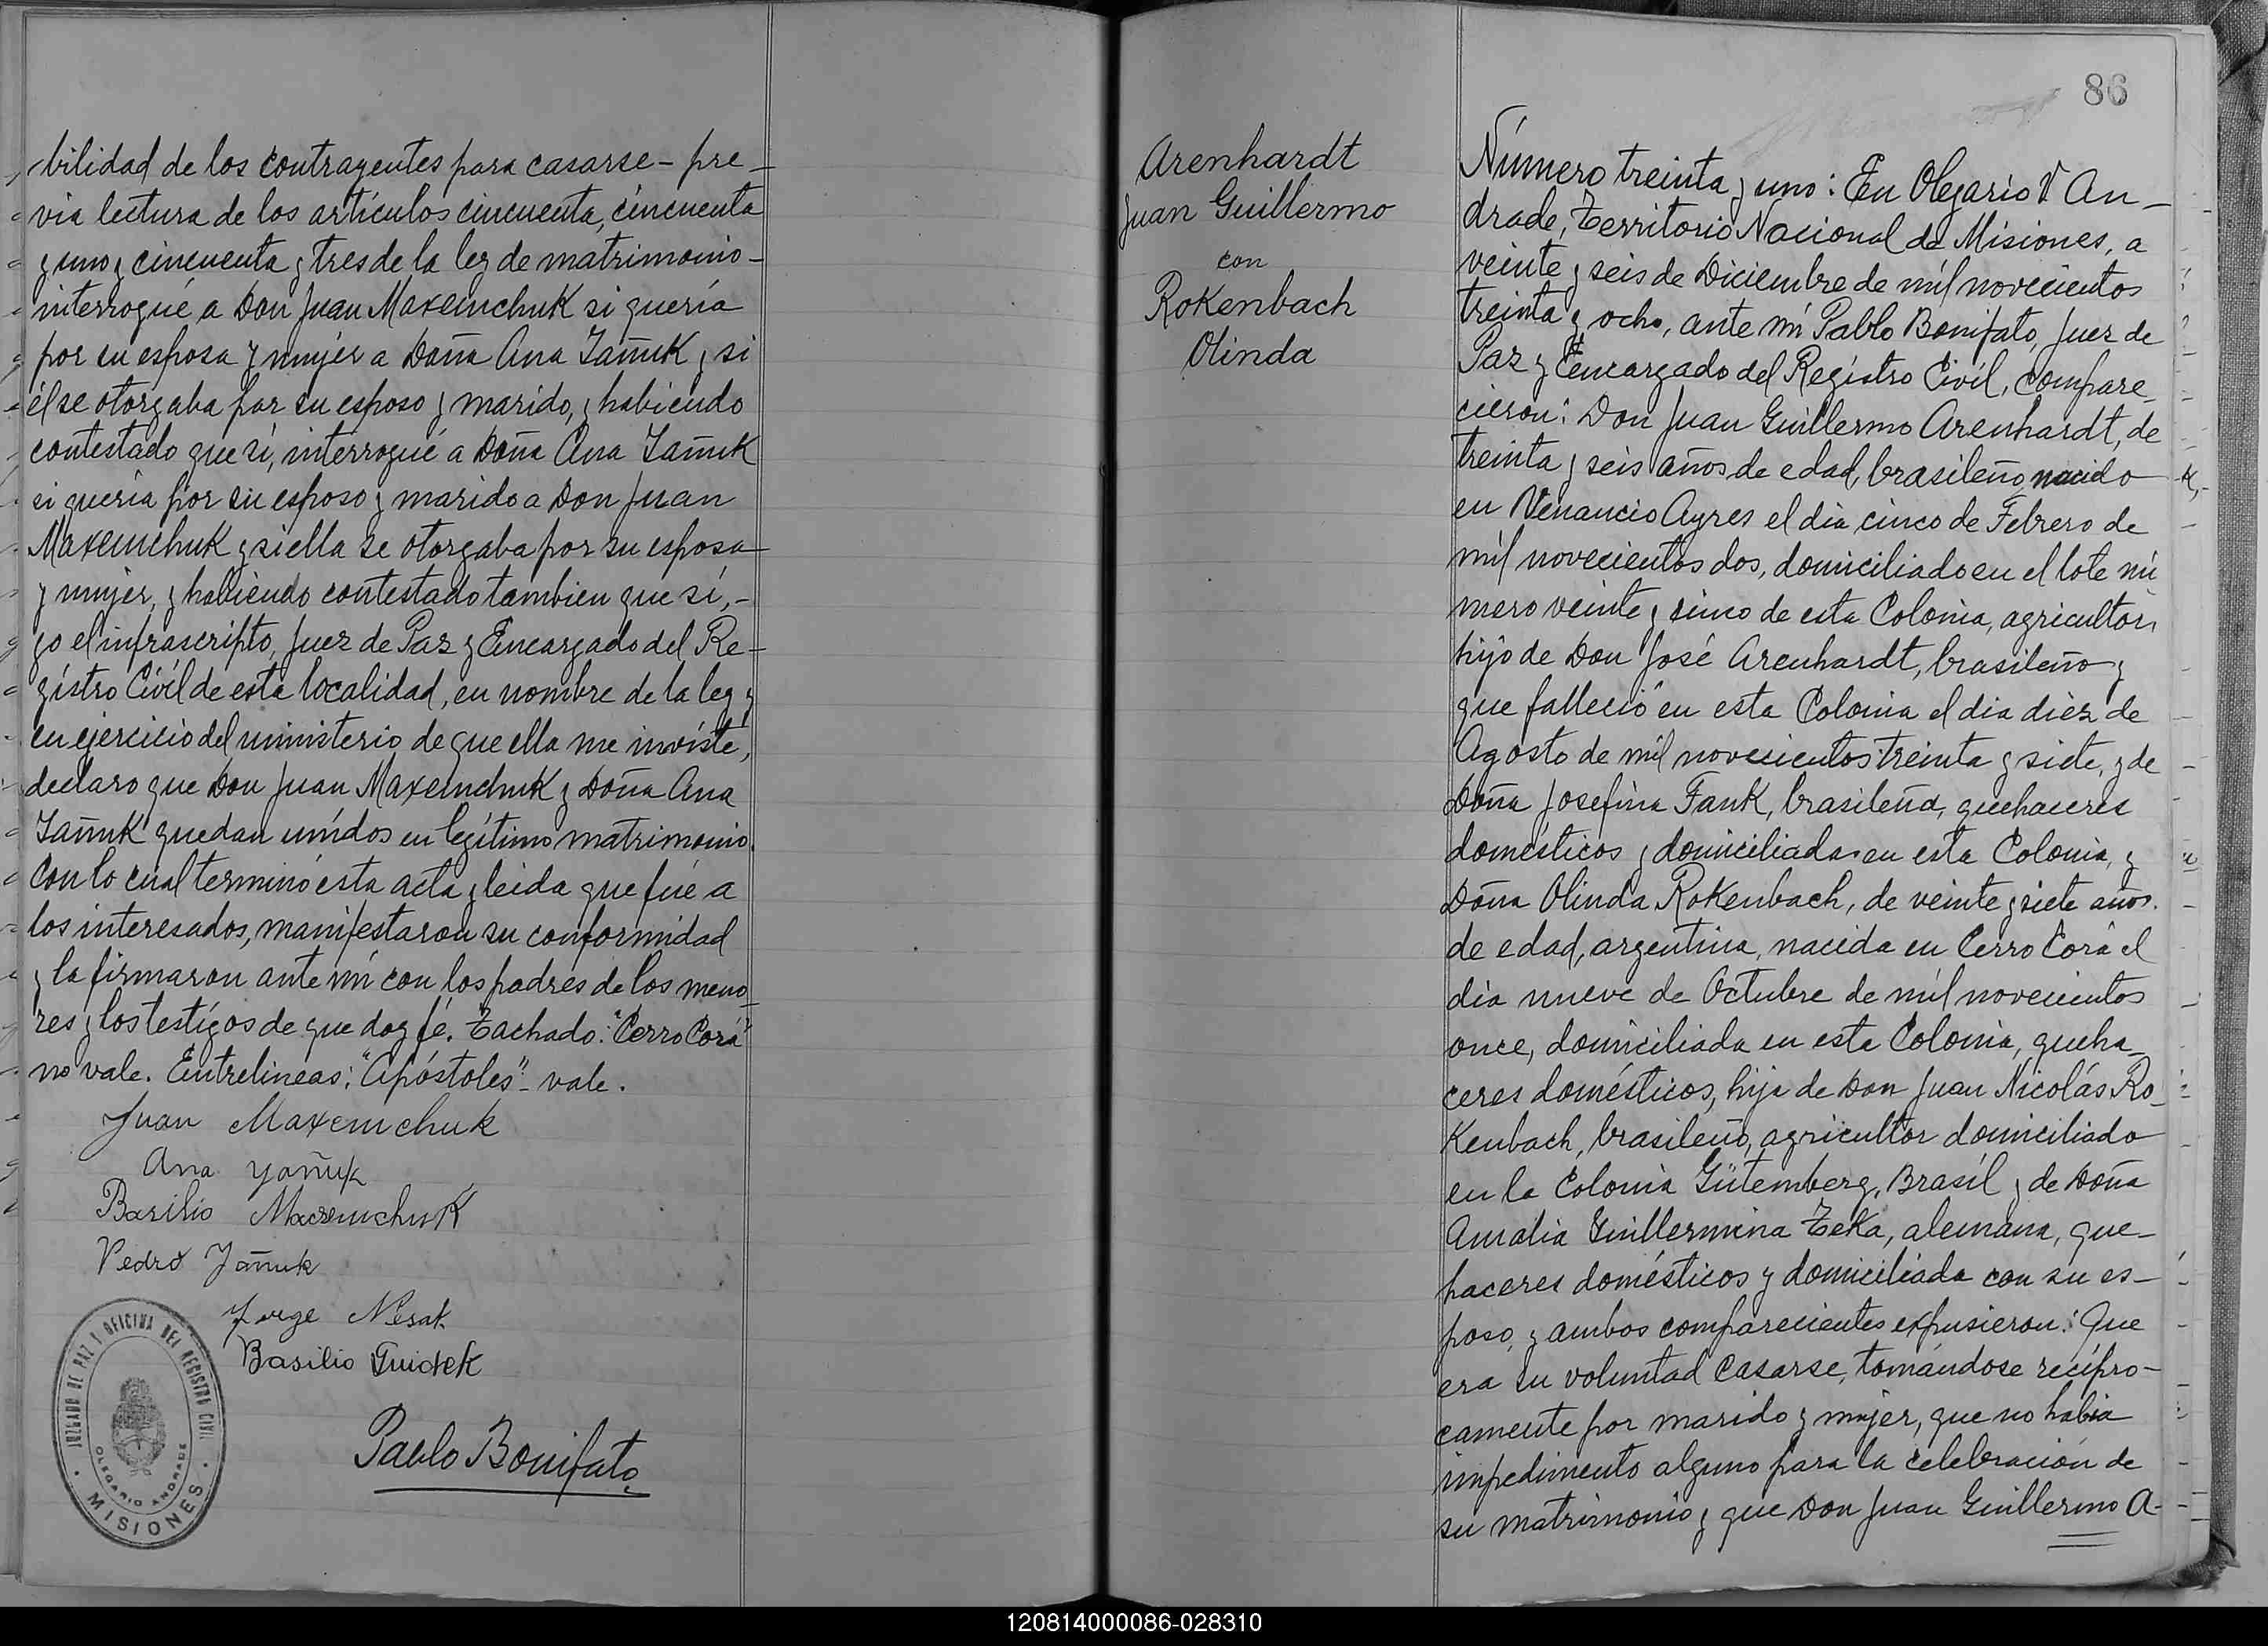 bilidad de los contrayentes para casarse - pre-
via lectura de los artículos cincuenta, cincuenta
y uno y cincuenta y tres de la ley de matrimonio -
interrogué a Don Juan Maxemchuk si quería
por su esposa y mujer a Doña Ana Iañuk y si
él se otorgaba por su esposo y marido, y habiendo
contestado que sí, interrogué a Doña Ana Iañuk
si quería por su esposo y marido a Don Juan
Maxemchuk y si ella se otorgaba por su esposa
y mujer, y habiendo contestado tambien que sí, -
yo el infrascripto, Juez de Paz y Encargado del Re-
gistro Civil de esta localidad, en nombre de la ley y
en ejercicio del ministerio de que ella me inviste,
declaro que Don Juan Maxemchuk y Doña Ana
Iañuk quedan unidos en legítimo matrimonio.
Con lo cual terminó esta acta y leida que fué a
los interesados, manifestaron su conformidad
y la firmaron ante mí con los padres de los meno-
res y los testigos de que doy fé. Tachado: "Cerro Corá"
no vale. Entrelineas: "Apóstoles" - vale.
Juan Maxemchuk
Ana Yañuk
Basilio Macsemchuk
Pedro Jañuk
Jorge Nesak
Basilio Guidek
Pablo Bonifato
JUZGADO DE PAZ Y OFICINA DEL REGISTRO CIVIL
OLEGARIO ANDRADE
MISIONES
86
Arenhardt
Juan Guillermo
con
Rokenbach
Olinda
Número treinta y uno: En Olegario V An-
drade, Territorio Nacional de Misiones, a
veinte y seis de Diciembre de mil novecientos
treinta y ocho, ante mí Pablo Bonifato, Juez de
Paz y Encargado del Registro Civil, compare-
cieron: Don Juan Guillermo Arenhardt, de
treinta y seis años de edad, brasileño, nacido
en Venancio Ayres el dia cinco de Febrero de
mil novecientos dos, domiciliado en el lote nú
mero veinte y cinco de esta Colonia, agricultor,
hijo de Don José Arenhardt, brasileño y
que falleció en esta Colonia el dia diez de
Agosto de mil novecientos treinta y siete, y de
Doña Josefina Fank, brasileña, quehaceres
domésticos y domiciliada en esta Colonia, y
Doña Olinda Rokenbach, de veinte y siete años
de edad, argentina, nacida en Cerro Corá el
dia nueve de Octubre de mil novecientos
once, domiciliada en esta Colonia, queha-
ceres domésticos, hija de Don Juan Nicolás Ro-
kenbach, brasileño, agricultor domiciliado
en la Colonia Gütemberg, Brasil y de Doña
Amalia Guillermina Teka, alemana, que-
haceres domésticos y domiciliada con su es-
poso, y ambos comparecientes expusieron: Que
era su voluntad casarse, tomándose recípro-
camente por marido y mujer, que no habia
impedimento alguno para la celebración de
su matrimonio y que Don Juan Guillermo A-
120814000086-028310